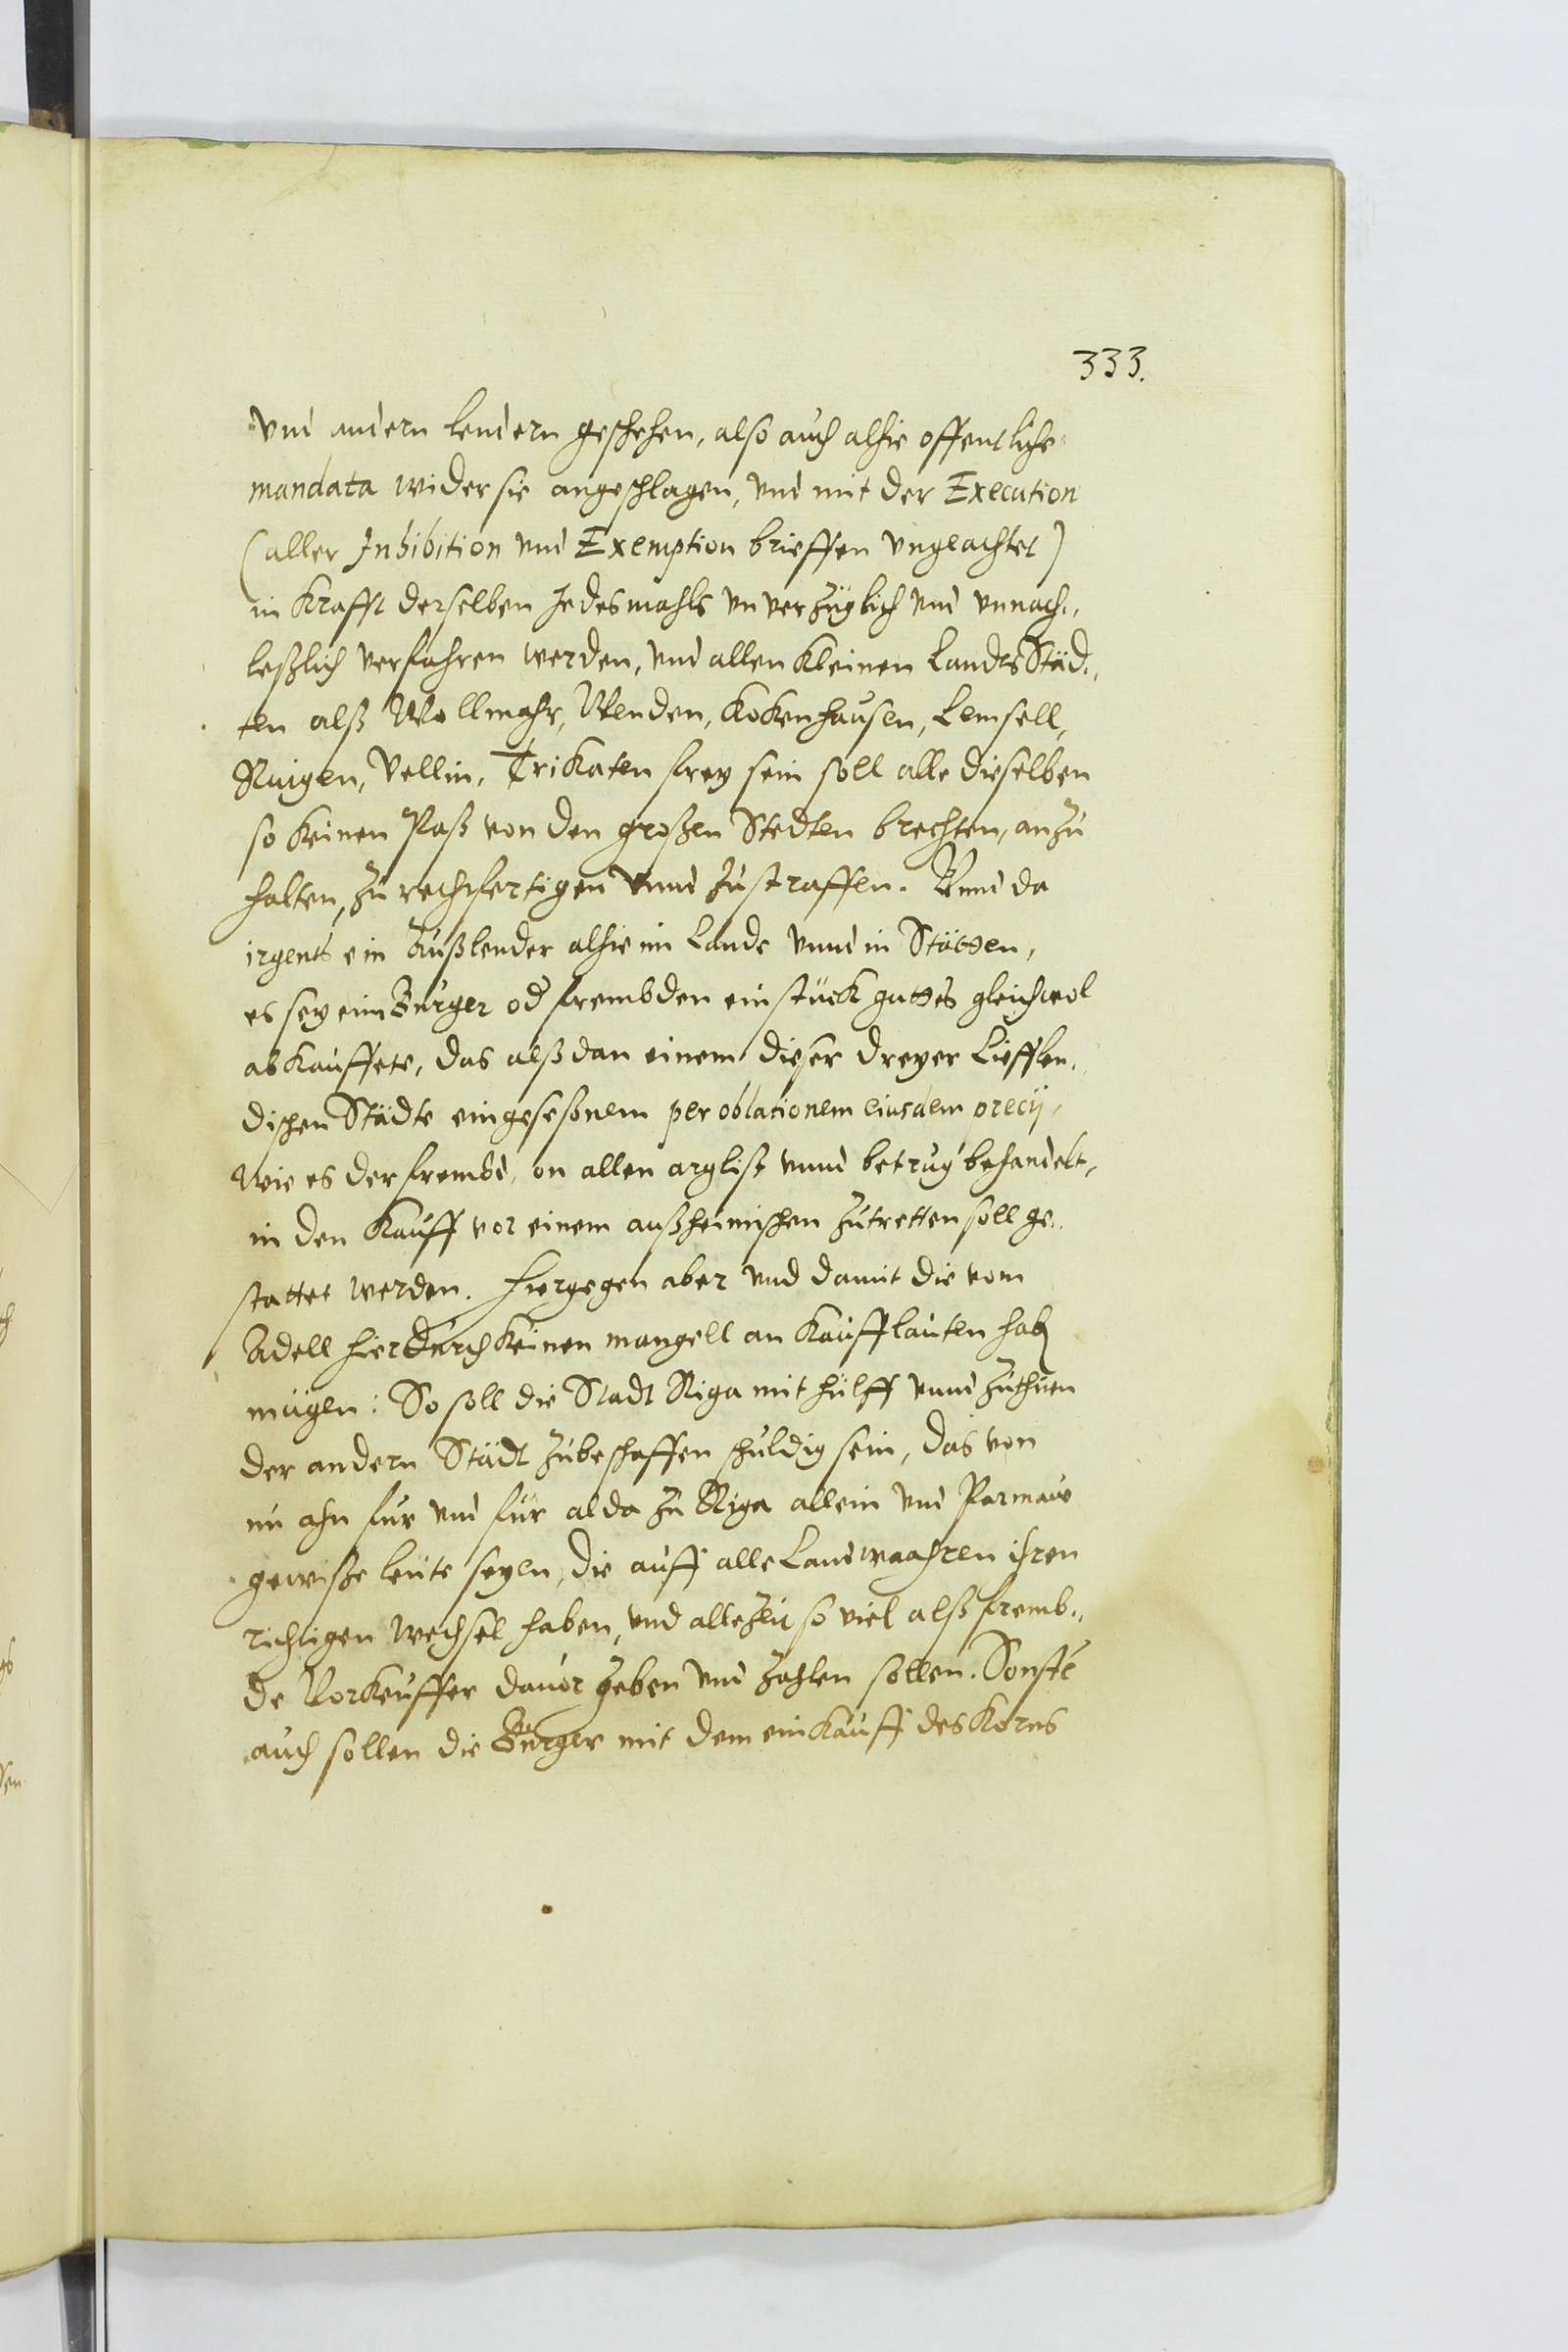 333.
vnd andern lendern geschehen, also auch alhie offentliche
mandata wider sie angeschlagen, vnd mit der Execution
(aller Inhibition vnd Exemption brieffen vngeachtet)
in Krafft derselben Jedesmahls vnverzüglich vnd vnnach„
leßlich verfahren werden, vnd allen Kleinen Landts Städ„
ten alß Wollmahr, Wenden, Kokenhausen, Lemsell,
Ruigen, Vellin, Trikaten frey sein soll alle dieselben
so Keinen Paß von den großen Stedten brechten, anzu
halten, zu rechtfertigen vnnd zustraffen. Vnnd da
irgents ein Außlender alhie im Lande vnnd in Stätten,
es sey eim Bürger od frembden ein stück guttes gleichwol
abkauffete, das alßdan einem dieser dreyer Lieflen„
dischen Städte eingeseßnem per oblationem eiusdem precij,
wie es der frembd, on allen arglist vnnd betrug behandelt,
in den Kauff vor einem außheimischen zutretten soll ge„
stattet werden. Hiergegen aber vnd damit die vom
Adell hierdurch Keinen mangell an Kaufflauten hab
mügen: So soll die Stadt Riga mit hülff vnnd zuthuen
der andern Städt zubeschaffen schuldig sein, das von
nu ahn fur vnd für alda zu Riga allein vnd Parnaw
gewiße leute seyen, die auff alle Landwaahren ihren
richtigen Wechsel haben, vnd allezeit so viel alß fremb„
de Vorkeuffer dauor geben vnd zahlen sollen. Sonste
auch sollen die Bürger mit dem einkauff des Korns